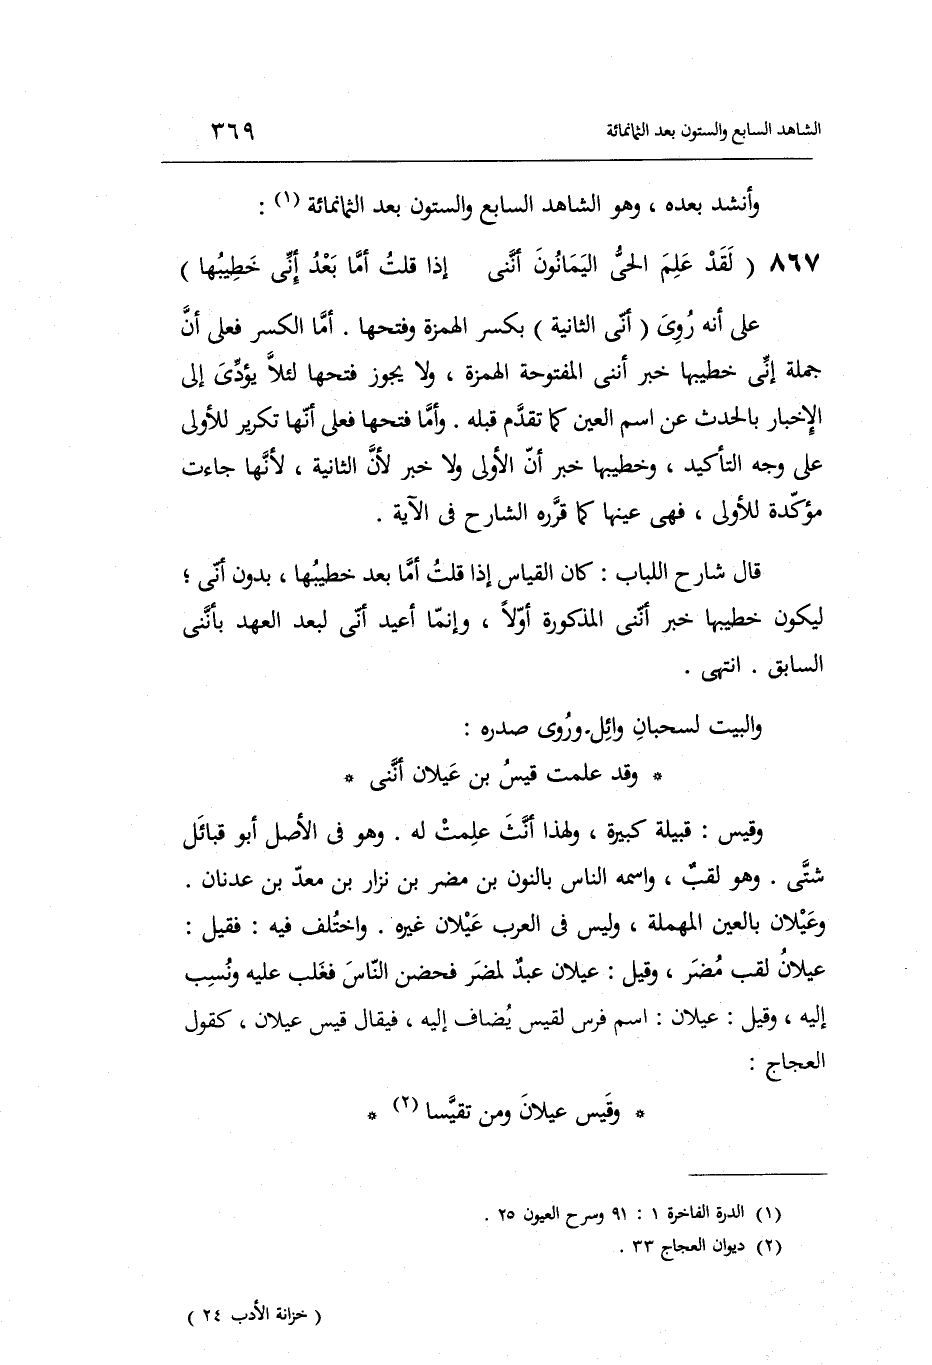 الشاهد السابع والستون بعد الثمانمائة ٣٦٩
وأنشد بعده ، وهو الشاهد السابع والستون بعد الثمانمائة (١) :
٨٦٧ ( لَقَدْ عَلِمَ الحىُّ اليَمَانُونَ أنَّنى إذا قلتُ أمَّا بَعْدُ إنِّى خَطِيبُها )
على أنه رُوِىَ ( أنّى الثانية ) بكسر الهمزة وفتحها . أمَّا الكسر فعلى أنَّ
جملة إنِّى خطيبها خبر أننى المفتوحة الهمزة ، ولا يجوز فتحها لئلاَّ يؤدِّىَ إلى
الإخبار بالحدث عن اسم العين كما تقدَّم قبله . وأمَّا فتحها فعلى أنّها تكرير للأولى
على وجه التأكيد ، وخطيبها خبر أنّ الأولى ولا خبر لأنَّ الثانية ، لأنَّها جاءت
مؤكّدة للأولى ، فهى عينها كما قرَّره الشارح فى الآية .
قال شارح اللباب : كان القياس إذا قلتُ أمَّا بعد خطيبُها ، بدون أنّى ؛
ليكون خطيبها خبر أنّنى المذكورة أوّلاً ، وإنمّا أعيد أنّى لبعد العهد بأنَّنى
السابق . انتهى .
والبيت لسحبانِ وائِل. ورُوى صدره :
* وقد علمت قيسُ بن عَيلان أنَّنى *
وقيس : قبيلة كبيرة ، ولهذا أنَّثَ علِمتْ له . وهو فى الأصل أبو قبائَل
شتَّى . وهو لقبٌ ، واسمه الناس بالنون بن مضر بن نزار بن معدّ بن عدنان .
وعَيْلان بالعين المهملة ، وليس فى العرب عَيْلان غيره . واختُلف فيه : فقيل :
عيلانُ لقب مُضَر ، وقيل : عيلان عبدٌ لمضرَ فحضن النّاسَ فغَلب عليه ونُسِب
إليه ، وقيل : عيلان : اسم فرس لقيس يُضاف إليه ، فيقال قيس عيلان ، كقول
العجاج :
* وقَيس عيلانَ ومن تقيَّسا (٢) *
(١) الدرة الفاخرة ١ : ٩١ وسرح العيون ٢٥ .
(٢) ديوان العجاج ٣٣ .
( خزانة الأدب ٢٤ )